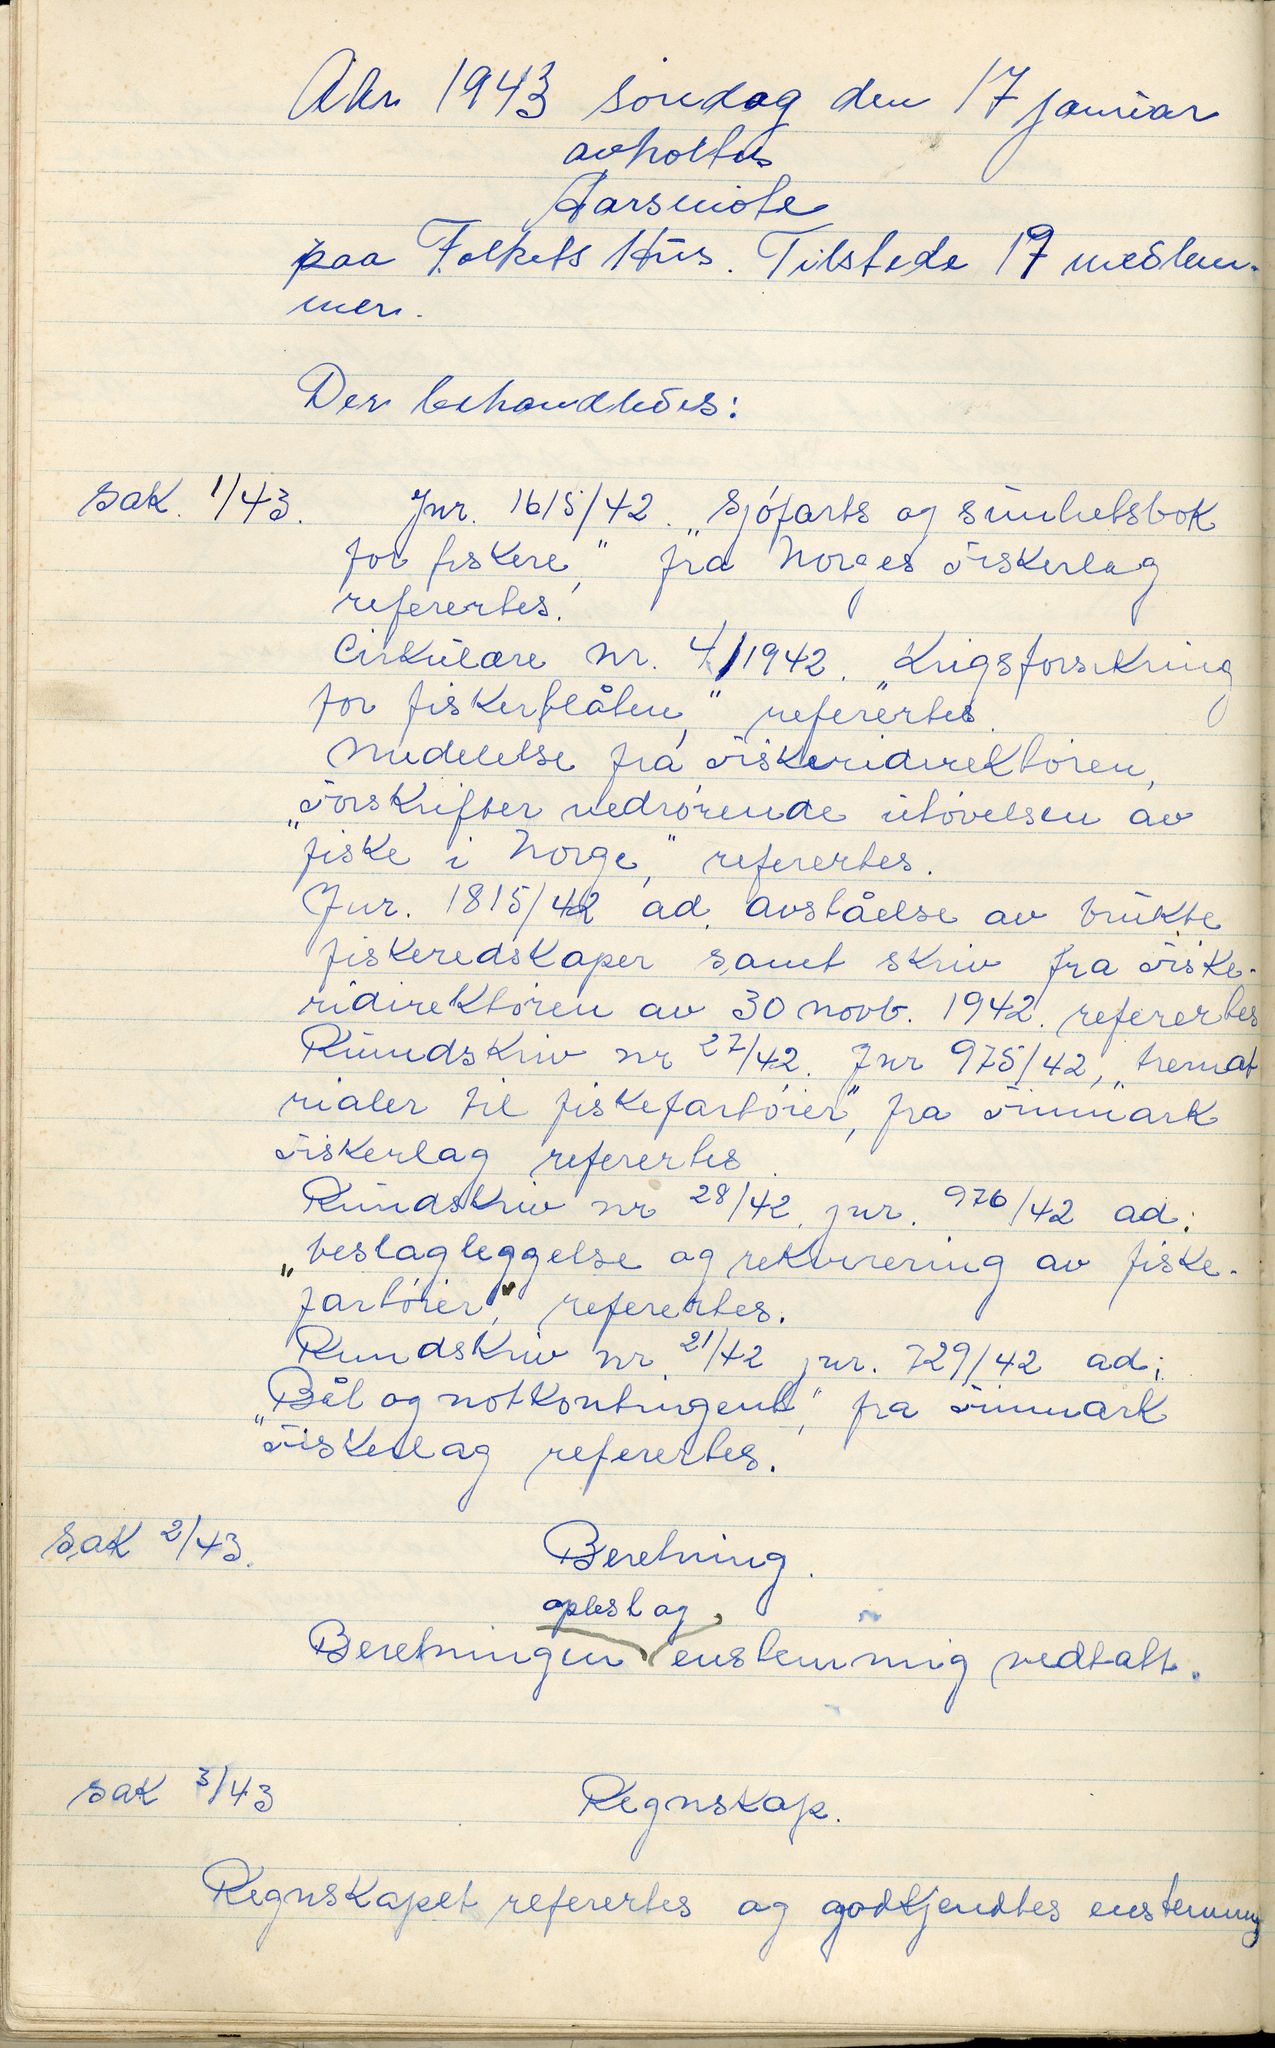 Aar 1943 söndag den 17 januar
avholtes
Aarsmöte
paa Folkets Hus. Tilstede 17 medlem-
mer.
Der behandledes:
Sak. 1/43. Jnr. 1615/42. „Sjöfarts og sunhetsbok
for fiskere," fra Norges Fiskerlag
referertes.
Cirkulære nr. 4/1942. „Krigsforsikring
for fiskerflåten," referertes.
Meddelelse frå Fiskeridirektören,
„Forskrifter vedrörende utövelsen av
fiske i Norge," referertes.
Jnr. 1815/42 ad. avståelse av brukte
fiskeredskaper samt skriv fra Fiske-
ridirektören av 30 novb. 1942. referertes
Rundskriv nr 27/42. Jnr 975/42, „tremat
rialer til fiskefartöier", fra Finnmark
Fiskerlag referertes.
Rundskriv nr 28/42. jnr. 976/42 ad:
„beslagleggelse og rekvirering av fiske-
fartöier," referertes.
Rundskriv nr 21/42 jnr. 729/42 ad;
„Båt og notkontingent," fra Finnmark
Fiskerlag referertes.
Sak 2/43. Beretning.
oplest og
Beretningen enstemmig vedtatt.
Sak 3/43 Regnskap.
Regnskapet referertes og godkjendtes enstemmig